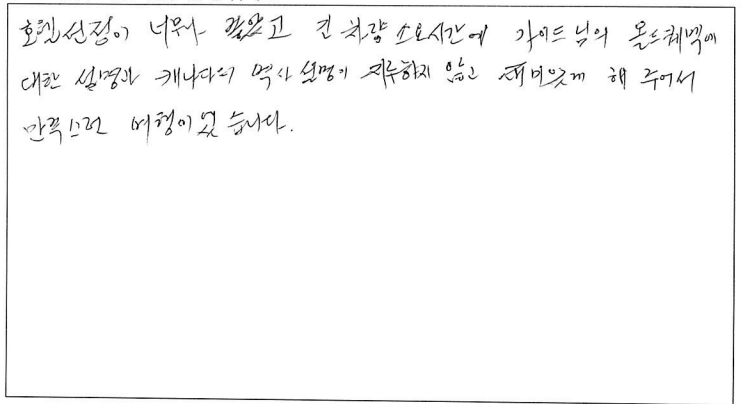 호텔선정이 너무나 좋았고 긴 차량 소요시간에 가이드님의 올드퀘백에
대한 설명과 캐나다의 역사 설명이 지루하지 않고 재미있게 해 주어서
만족스런 여행이었습니다.